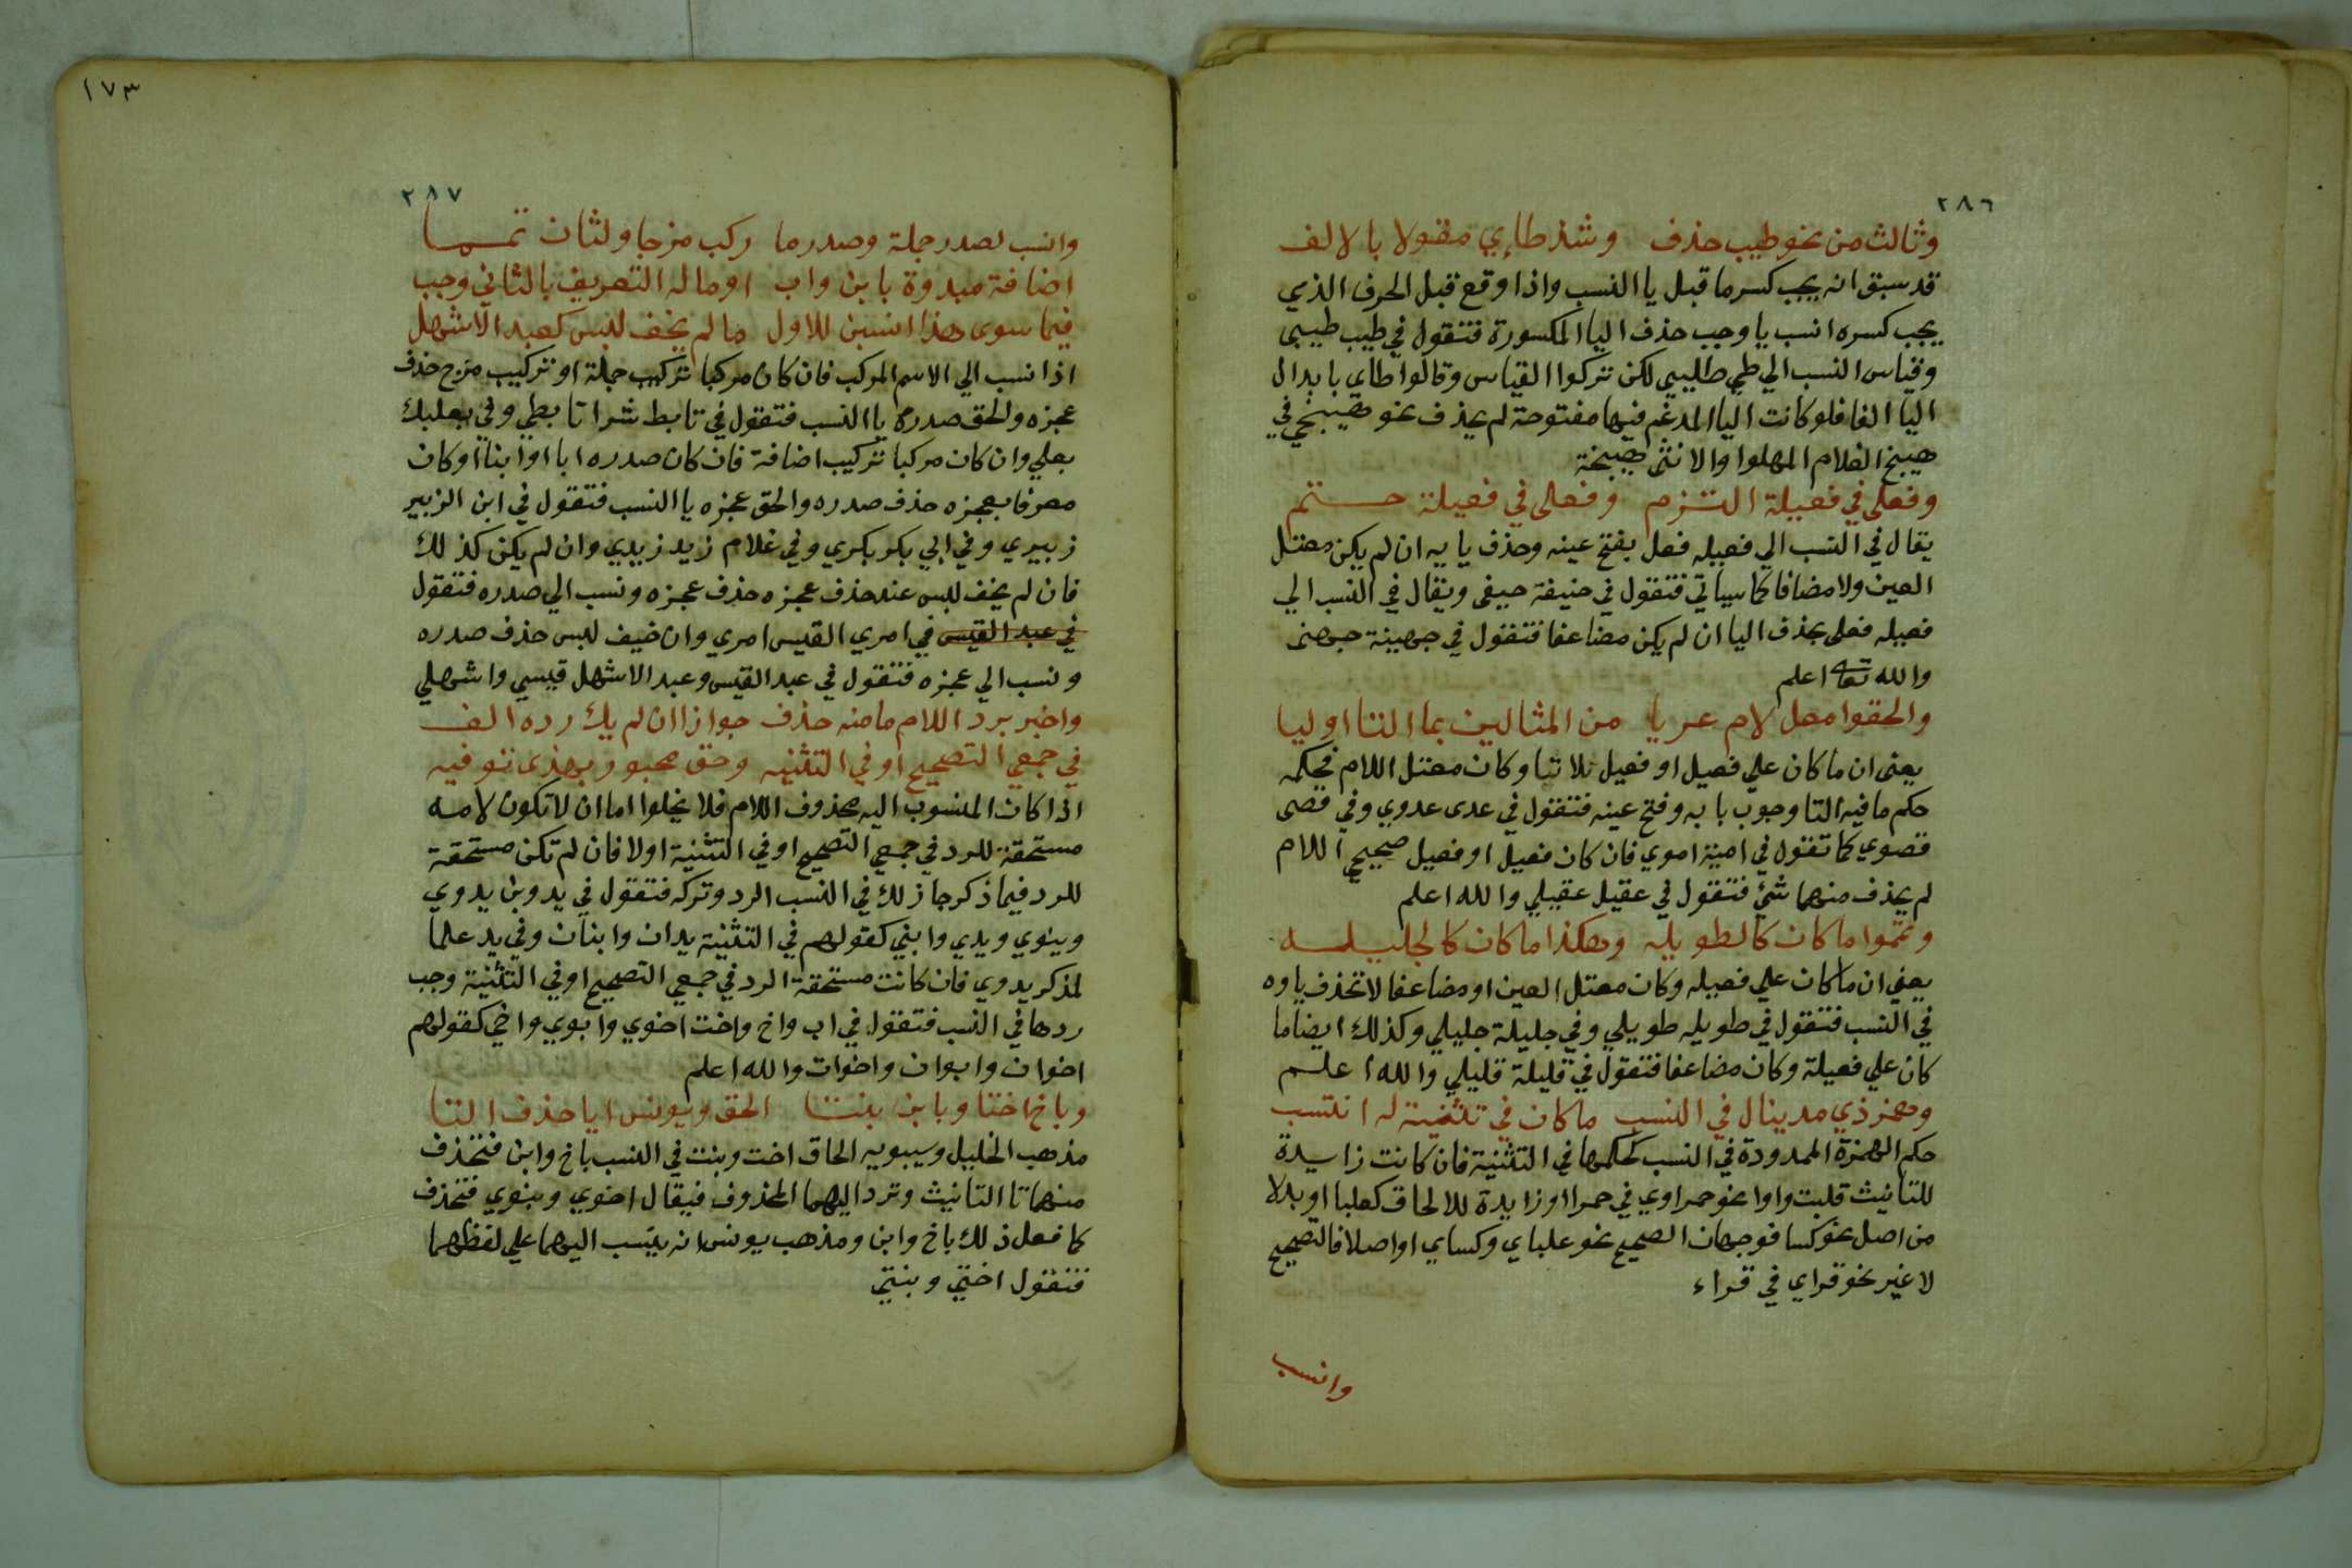 ٢٨٦
وثالث من نحو طيب حذف وشذ طائي مقولا بالالف
قد سبق انه يجب كسر ما قبل يا النسب واذا وقع قبل الحرف الذي
يجب كسره انسب يا وجب حذف اليا المكسورة فتقول في طيب طيبى
وقياس النسب الي طي طيبي لكن تركوا القياس وقالوا طاي بابدال
اليا الفا فلو كانت اليا المدغم فيها مفتوحة لم يحذف نحو هبيخي في
هبيخ الغلام المهلوا والانثى هبيخة
وفعلى في فعيلة التزم وفعلى في فعيلة حتم
يقال في النسب الي فعيله فعل بفتح عينه وحذف يايه ان لم يكن معتل
العين ولا مضافا كما سياتي فتقول في حنيفة حيفى ويقال في النسب الي
فعيله فعلى بحذف اليا ان لم يكن مضاعفا فتقول في جهينة جهنى
والله تعا اعلم
والحقوا معل لام عريا من المثالين بما التا اوليا
يعنى ان ما كان علي فعيل او فعيل بلا تا وكان معتل اللام فحكمه
حكم ما فيه التا وجوب بابه وفتح عينه فتقول في عدى عدوي وفي قصى
قصوي كما تقول في امية اموي فان كان فعيل او فعيل صحيحي اللام
لم يحذف منهما شئ فتقول في عقيل عقيلي والله اعلم
وتمموا ما كان كالطويله وهكذا ما كان كالجليله
يعني ان ما كان علي فعيله وكان معتل العين او مضاعفا لا تحذف ياوه
في النسب فتقول في طويله طويلي وفي جليلة جليلي وكذلك ايضا ما
كان علي فعيلة وكان مضاعفا فتقول في قليلة قليلي والله اعلم
وهمز ذي مد ينال في النسب ما كان في تثنية له انتسب
حكم الهمزة الممدودة في النسب كحكمها في التثنية فان كانت زايدة
للتانيث قلبت واوا نحو حمراوي في حمرا او زايدة للالحاق كعلبا او بدلا
من اصل نحو كسا فوجهان الصحيح نحو علباي وكساي او اصلا فالتصحيح
لا غير نحو قراي في قراء
وانسب
١٧٣
٢٨٧
وانسب لصدر جملة وصدر ما ركب مزجا ولثان تمما
اضافة مبدوة بابن واب او ماله التعريف بالثاني وجب
فيما سوى هذا انسبن للاول ما لم يخف لبس كعبد الاشهل
اذا نسب الي الاسم المركب فان كان مركبا تركيب جملة او تركيب مزج حذف
عجزه والحق صدره يا النسب فتقول في تابط شرا تابطي وفي بعلبك
بعلي وان كان مركبا تركيب اضافة فان كان صدره ابا او ابنا او كان
معرفا بعجزه حذف صدره والحق عجزه يا النسب فتقول في ابن الزبير
زبيري وفي ابي بكر بكري وفي غلام زيد زيدي وان لم يكن كذلك
فان لم يخف لبس عند حذف عجزه حذف عجزه ونسب الي صدره فتقول
في عبد القيس في امري القيس امري وان خيف لبس حذف صدره
ونسب الي عجزه فتقول في عبد القيس وعبد الاشهل قيسي واشهلي
واجبر برد اللام ما منه حذف جوازا ان لم يك رده الف
في جمعي التصحيح او في التثنيه وحق مجبور بهذى توفيه
اذا كان المنسوب اليه محذوف اللام فلا يخلوا اما ان لا تكون لامه
مستحقة للرد في جمعي التصحيح او في التثنية اولا فان لم تكن مستحقة
للرد فيما ذكر جاز لك في النسب الرد وتركه فتقول في يد وبن يدوي
وبنوي ويدي وابني كقولهم في التثنية يدان وابنان وفي يد علما
لمذكر يدوي فان كانت مستحقة الرد في جمعي التصحيح او في التثنية وجب
ردها في النسب فتقول في اب واخ واخت اخوي وابوي واخي كقولهم
اخوان وابوان واخوات والله اعلم
وباخ اختا وبابن بنتا الحق ويونس ابا حذف التا
مذهب الخليل وسيبويه الحاق اخت وبنت في النسب باخ وابن فتحذف
منهما تا التانيث وترد اليهما المحذوف فيقال اخوي وبنوي فتحذف
كما فعل ذلك باخ وابن ومذهب يونس انه ينسب اليهما علي لفظهما
فتقول اختي وبنتي